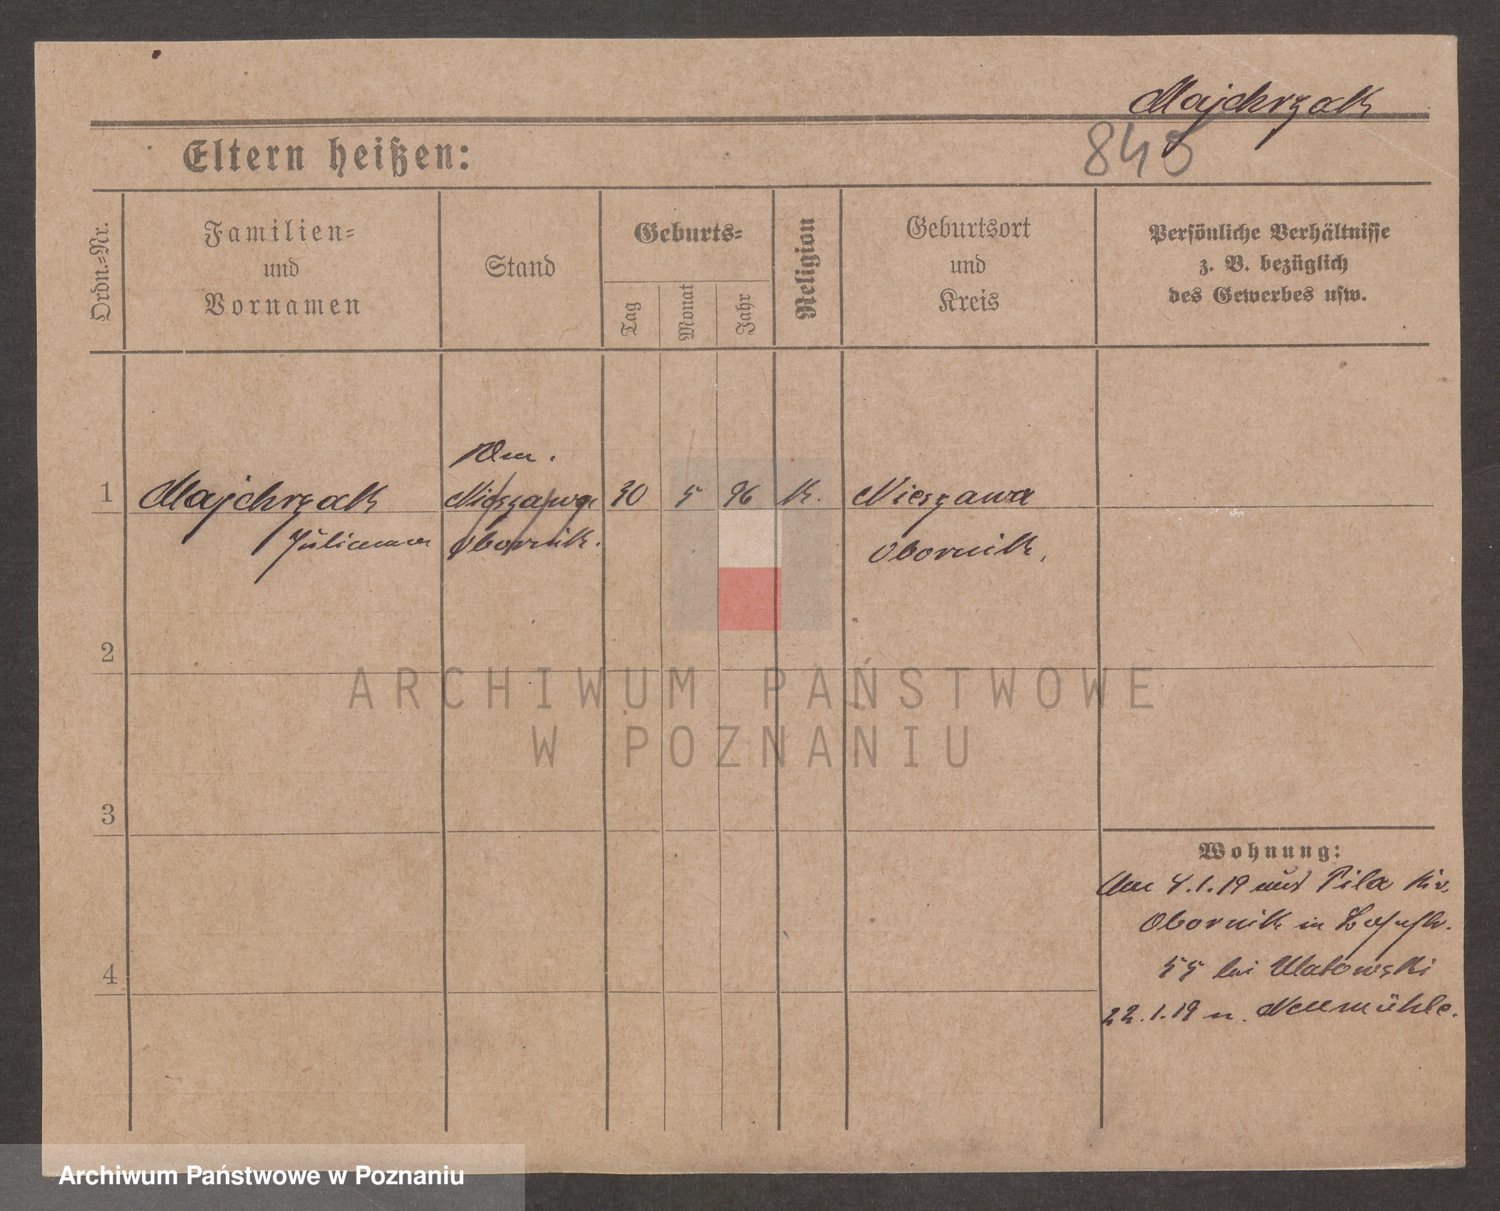 Majchrzak
845
Eltern heißen:
Ordn.=Nr.
Familien=
und
Vornamen
Stand
Geburts=
Tag
Monat
Jahr
Religion
Geburtsort
und
Kreis
Persönliche Verhältnisse
z. B. bezüglich
des Gewerbes usw.
1
Majchrzak
Julianna
Nieszawa
Obornik.
30
5
96
K.
Nieszawa
Obornik.
2
3
4
Wohnung:
4.1.19 aus Pila Kr.
Obornik in
55 bei
22.1.19 n. Neumühle.
ARCHIWUM PAŃSTWOWE
W POZNANIU
Archiwum Państwowe w Poznaniu